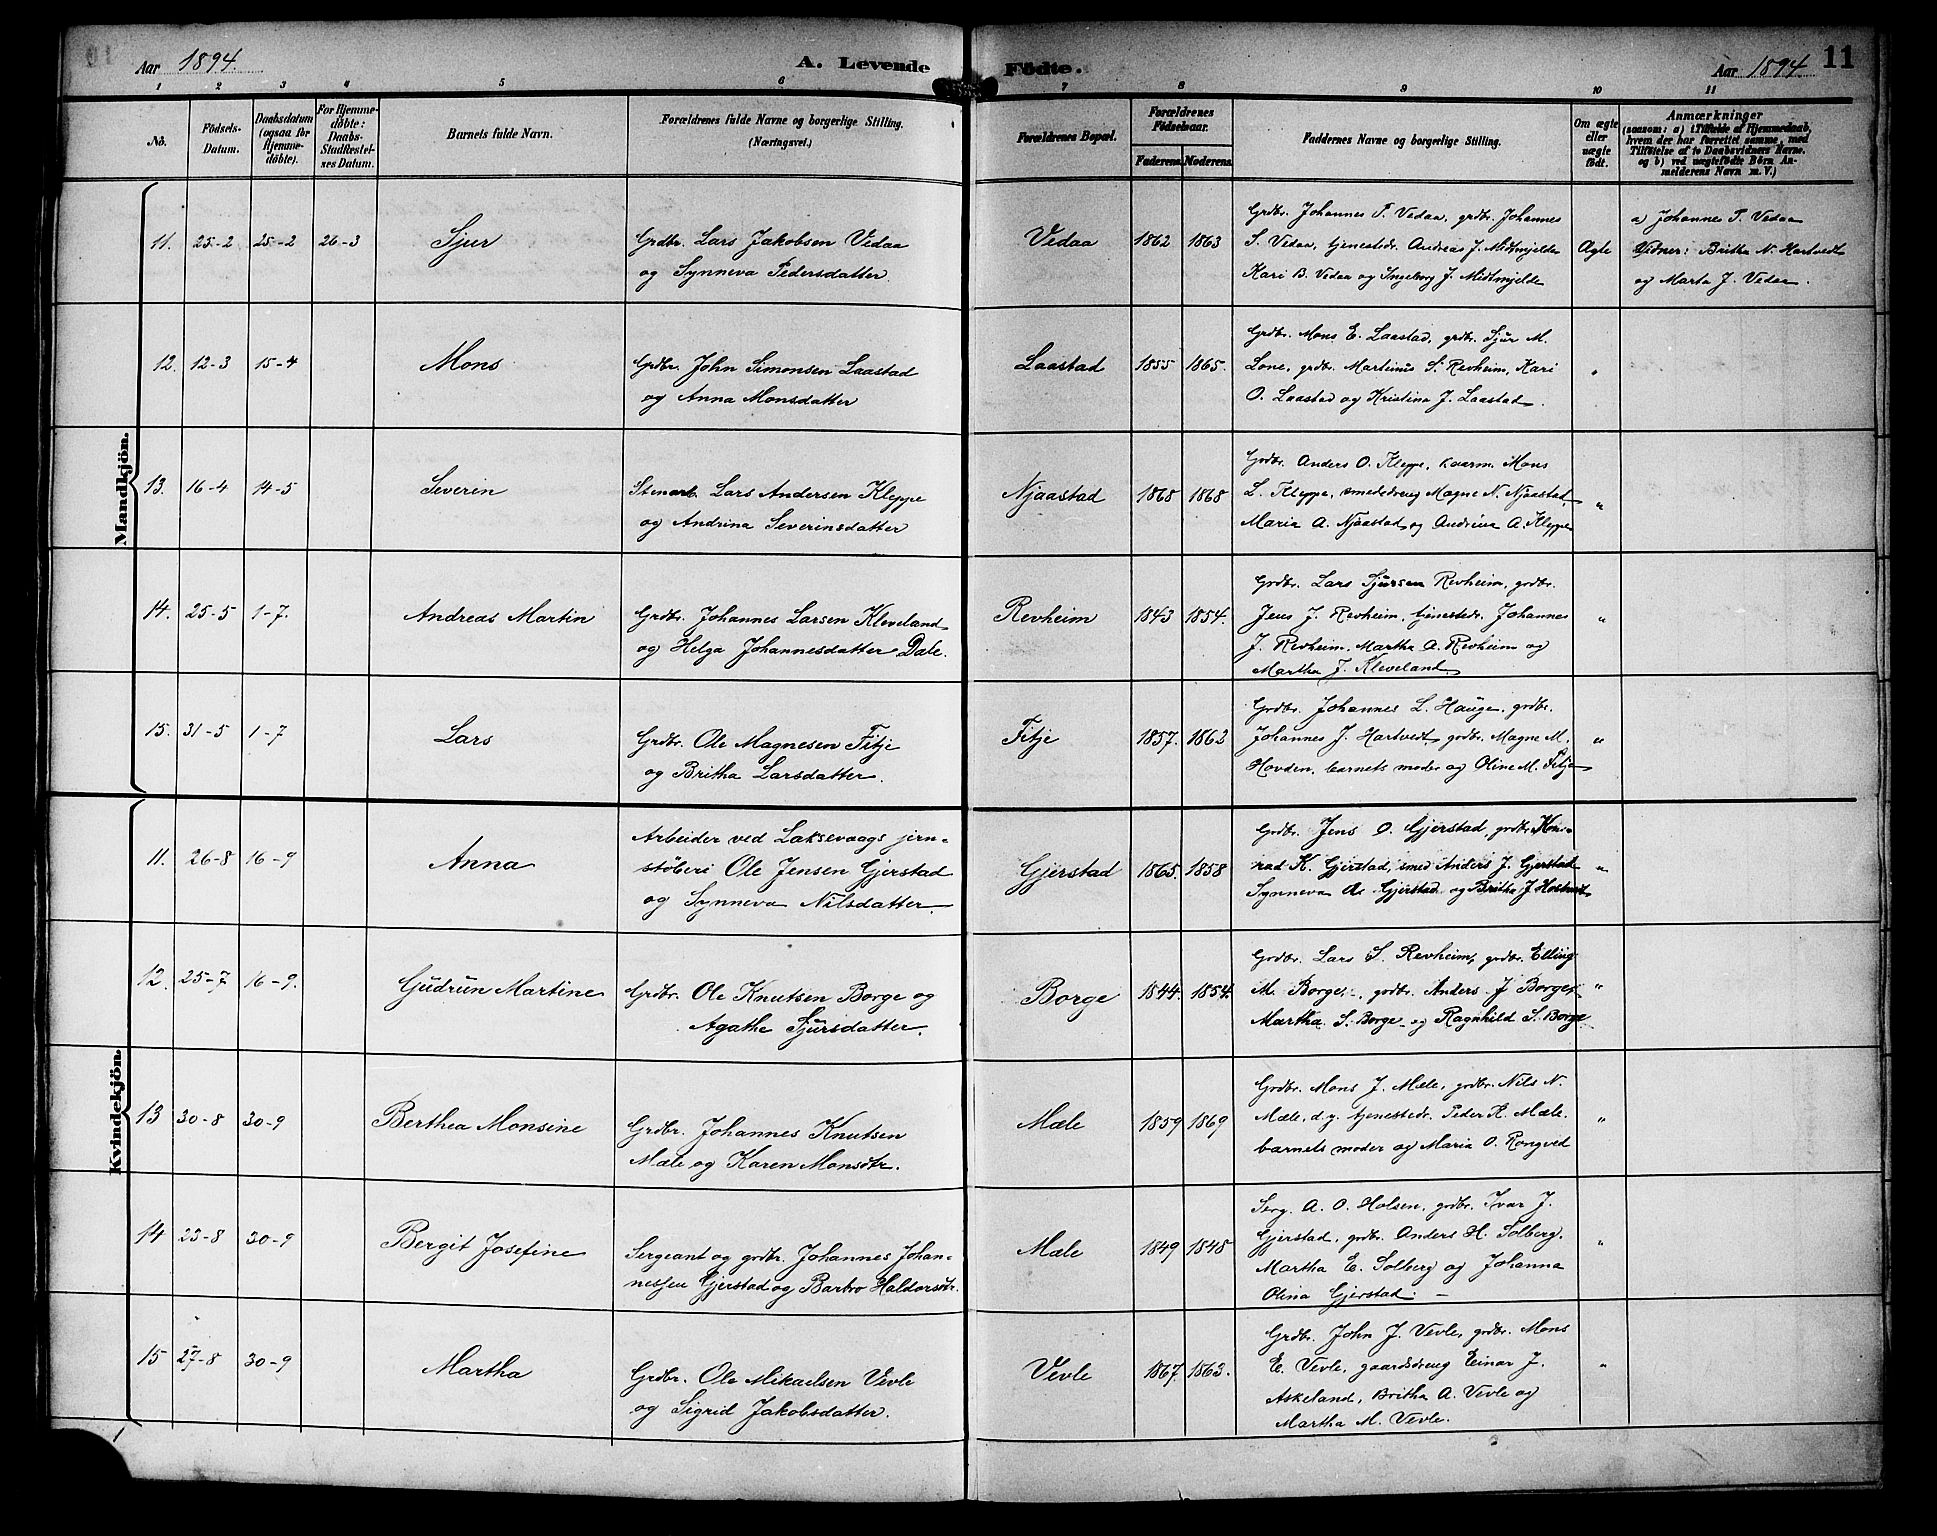 Aar 1894.
A. Levende Födte.
Aar 1894. 11
1 2 3 4 5 6 7 8 9 10 11
No.
Födsels-Datum.
Daabsdatum (ogsaa for Hjemmedöbte).
For Hjemmedöbte: Daabs-Stadfæstelsnes Datum.
Barnets fulde Navn.
Forældrenes fulde Navne og borgerlige Stilling.
(Næringsvei.)
Forældrenes Bopæl.
Forældrenes Födselsaar.
Faderens. Moderens.
Faddernes Navne og borgerlige Stilling.
Om ægte eller uægte födt.
Anmærkninger
(saasom: a) i Tilfælde af Hjemmedaab, hvem der har forrettet samme, med Tilföielse af to Daabsvidners Navne, og b) ved uægtefödte Börn Anmelderens Navn m. V.)
Mandkjön.
11. 25-2 25-2 26-3 Sjur
Grdbr. Lars Jakobsen Vedaa
og Synneva Pedersdatter.
Vedaa 1862 1863
Grdbr. Johannes P. Vedaa, grdbr. Johannes
S. Vedaa, tjenestedr. Andreas J. Midtmjelde
Kari B. Vedaa og Ingeborg J. Midtmjelde
Ægte
a) Johannes P. Vedaa
Vidner: Britha N. Hartvedt
og Marta J. Vedaa.
12. 12-3 15-4 Mons
Grdbr. John Simonsen Laastad
og Anna Monsdatter
Laastad 1855 1865.
Grdbr. Mons E. Laastad, grdbr. Sjur M.
Lone, grdbr. Martinus S. Revheim, Kari
O. Laastad og Kristina J. Laastad.
"
13. 16-4 14-5 Severin
Stenarb. Lars Andersen Kleppe
og Andrina Severinsdatter
Njaastad 1868 1868
Grdbr. Anders O. Kleppe, kaarm. Mons
L. Kleppe, smededreng Magne N. Njaastad,
Maria A. Njaastad og Andrina A. Kleppe
"
14. 25-5 1-7. Andreas Martin
Grdbr. Johannes Larsen Kleveland
og Helga Johannesdatter Dale.
Revheim 1843 1854.
Grdbr. Lars Sjursen Revheim, grdbr.
Jens J. Revheim, tjenestedr. Johannes
J. Revheim, Martha A. Revheim og
Martha J. Kleveland.
"
15. 31-5 1-7 Lars
Grdbr. Ole Magnesen Fitje
og Britha Larsdatter.
Fitje 1857. 1862
Grdbr. Johannes L. Hauge, grdbr.
Johannes J. Hartvedt, grdbr. Magne M.
Hovden, barnets moder og Oline M. Fitje
"
Kvindekjön.
11. 26-8 16-9 Anna
Arbeider ved Laksevaags jern-
stöberi Ole Jensen Gjerstad
og Synneva Nilsdatter.
Gjerstad 1865. 1858
Grdbr. Jens O. Gjerstad, grdbr. Kon-
rad K. Gjerstad, smed Anders J. Gjerstad
Synneva A. Gjerstad og Britha J.
"
12. 25-7 16-9. Gudrun Martine
Grdbr. Ole Knutsen Borge og
Agathe Sjursdatter.
Borge 1844. 1854.
Grdbr. Lars S. Revheim, grdbr. Elling
M. Borge, grdbr. Anders J Borge,
Martha S. Borge og Ragnhild S. Borge
"
13 30-8 30-9 Berthea Monsine
Grdbr. Johannes Knutsen
Mæle og Karen Monsdtr.
Mæle 1859 1869
Grdbr. Mons J. Mæle, grdbr. Nils N.
Mæle, d.y. tjenestedr. Peder K. Mæle.
barnets moder og Maria O. Rongved
"
14 23-8 30-9 Bergit Josefine
Sergeant og grdbr. Johannes Johan-
nessen Gjerstad og Barbro Haldorsdtr.
Mæle 1849 1848
Serg. A. O. Holsen, grdbr. Ivar J.
Gjerstad, grdbr. Anders H. Solberg.
Martha E. Solberg og Johanna
Olina Gjerstad. —
"
15 27-8 30-9 Martha
Grdbr. Ole Mikaelsen Vevle
og Sigrid Jakobsdatter.
Vevle 1867 1863.
Grdbr. John J. Vevle, grdbr. Mons
E. Vevle, gaardsdreng Einar J.
Askeland, Britha A. Vevle og
Martha M. Vevle.
"